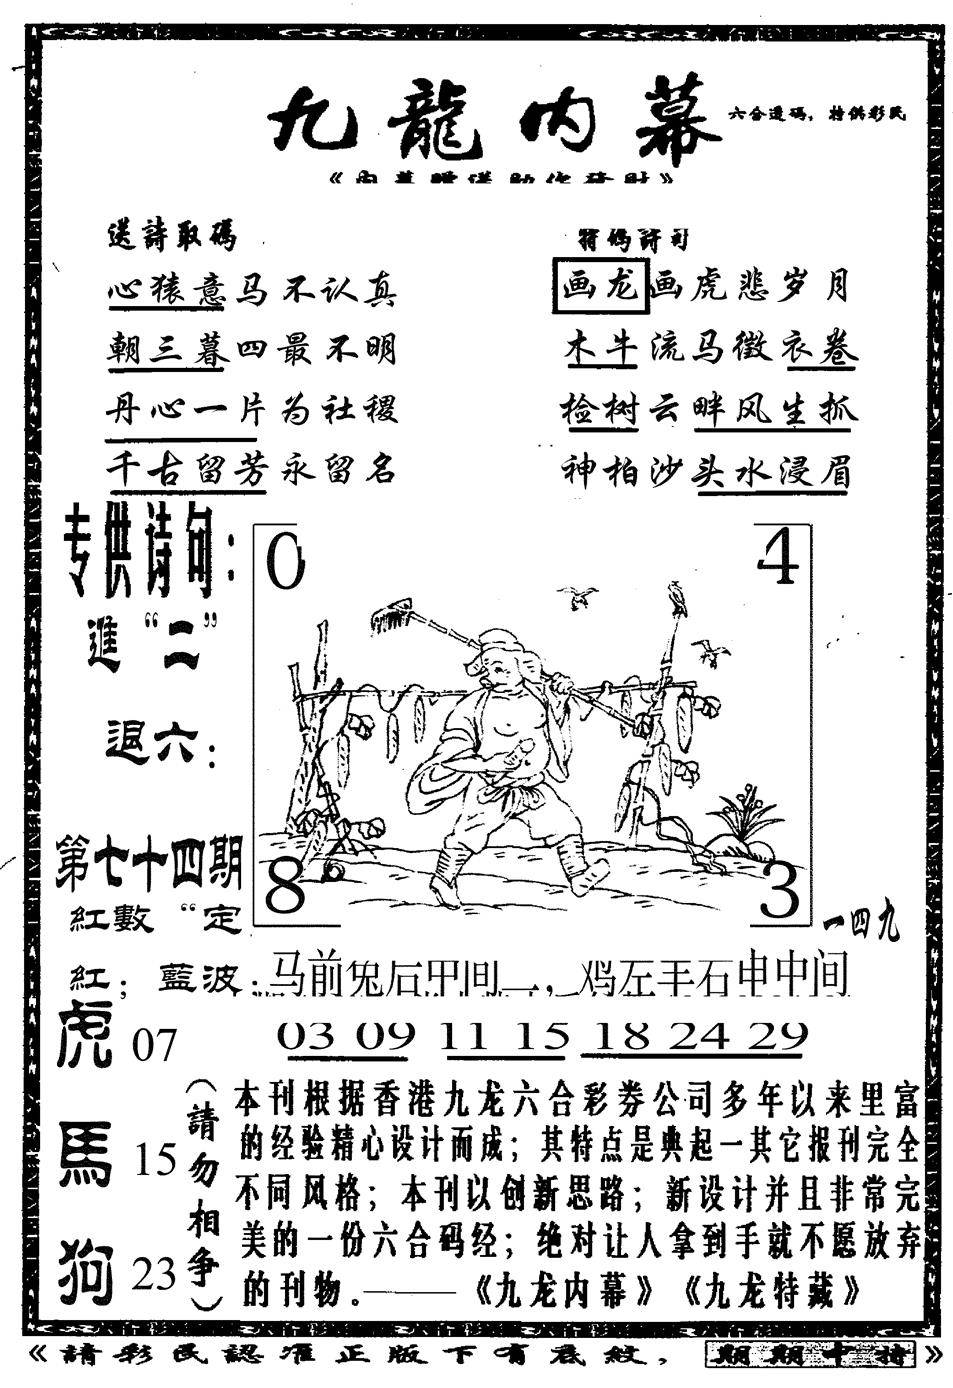 九龍内幕
六合透码，特供彩民
《内幕贈送助你發財》
送詩取碼
心猿意马不认真
朝三暮四最不明
丹心一片为社稷
千古留芳永留名
特碼詩句
画龙画虎悲岁月
木牛流马徵衣卷
检树云畔风生抓
神柏沙头水浸眉
专供诗句：
進“二”
退六：
第七十四期
紅數“定
紅；藍波：
0
4
8
3
一四九
马前兔后甲间二，鸡左羊右申中间
03 09 11 15 18 24 29
虎 07
馬 15
狗 23
（請勿相争）
本刊根据香港九龙六合彩券公司多年以来里富
的经验精心设计而成；其特点是典起一其它报刊完全
不同风格；本刊以创新思路；新设计并且非常完
美的一份六合码经；绝对让人拿到手就不愿放弃
的刊物。———《九龙内幕》《九龙特藏》
《請彩民認准正版下有底紋，期期中特》